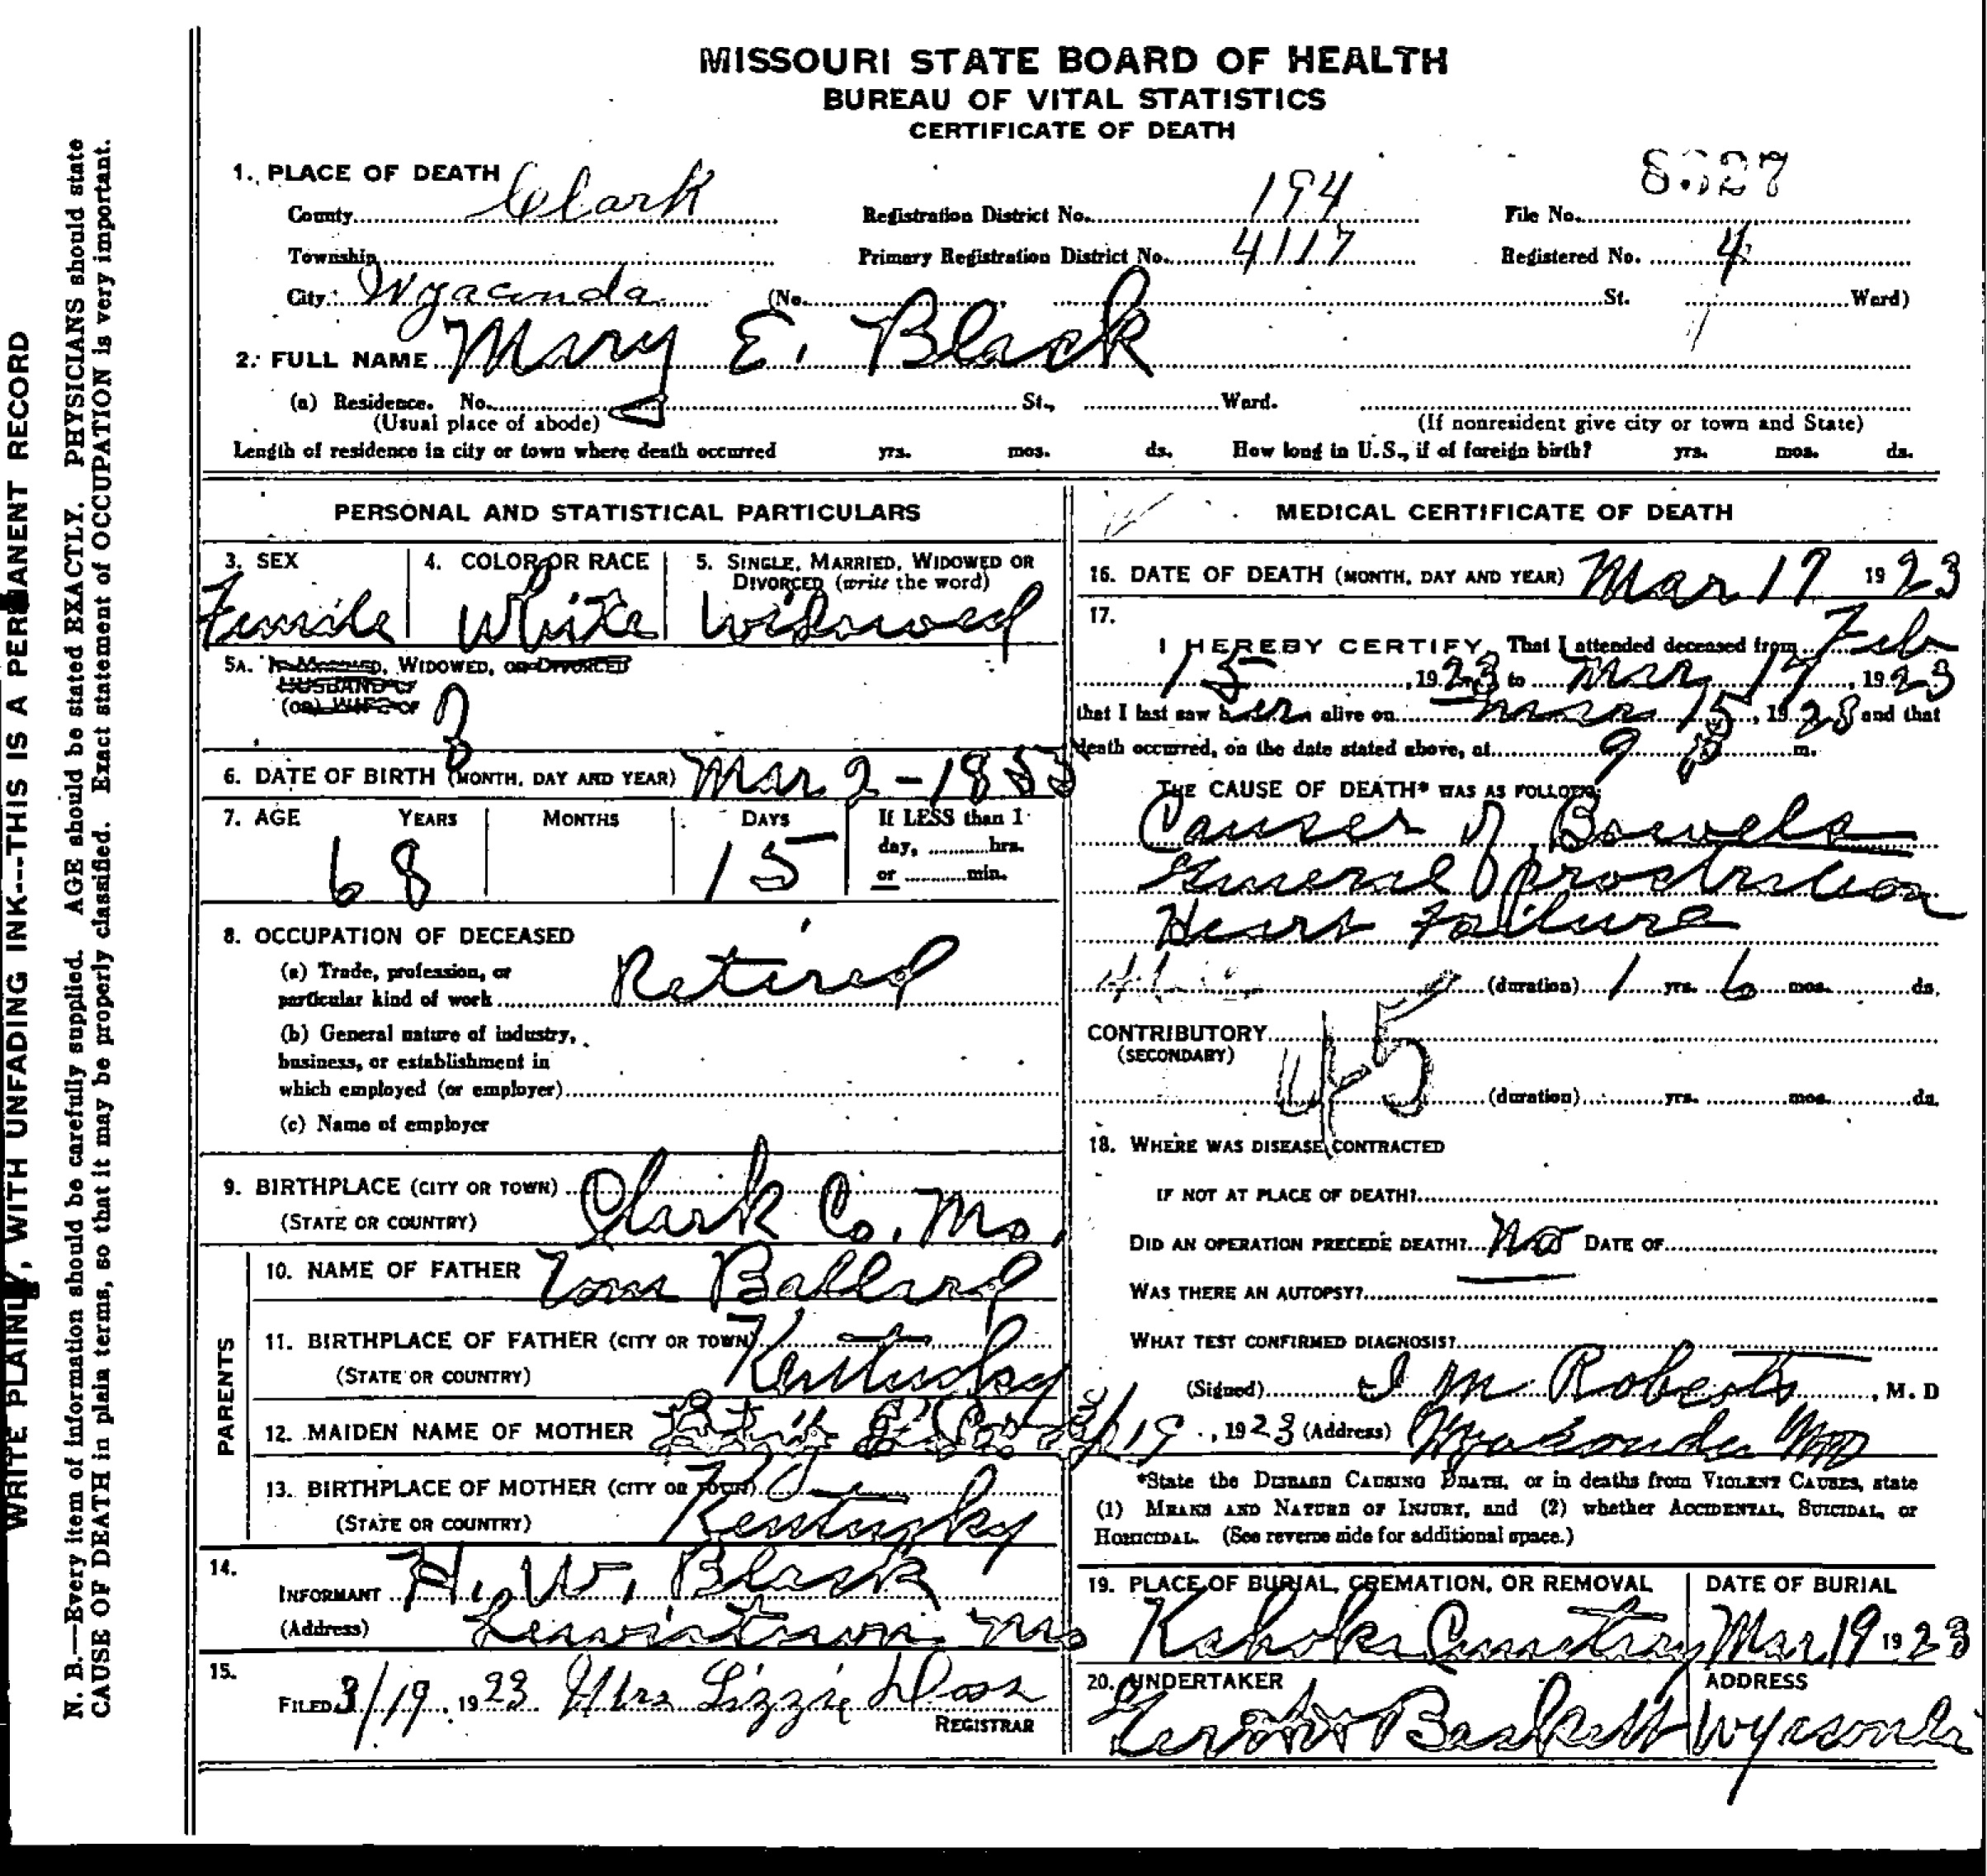 MISSOURI STATE BOARD OF HEALTH
BUREAU OF VITAL STATISTICS
CERTIFICATE OF DEATH
1. PLACE OF DEATH
County Clark Registration District No. 194 File No.
Township Primary Registration District No. 4117 Registered No. 4
City Wyaconda (No. , St. Ward)
2. FULL NAME Mary E. Black
(a) Residence. No. St., Ward.
(Usual place of abode) (If nonresident give city or town and State)
Length of residence in city or town where death occurred yrs. mos. ds. How long in U.S., if of foreign birth? yrs. mos. ds.
PERSONAL AND STATISTICAL PARTICULARS
3. SEX 4. COLOR OR RACE 5. SINGLE, MARRIED, WIDOWED OR
DIVORCED (write the word)
Female White Widowed
5A. IF MARRIED, WIDOWED, OR DIVORCED
HUSBAND OF
(OR) WIFE OF
6. DATE OF BIRTH (MONTH, DAY AND YEAR) Mar 2-18
7. AGE YEARS MONTHS DAYS If LESS than 1
day, hrs.
or min.
68 15
8. OCCUPATION OF DECEASED
(a) Trade, profession, or
particular kind of work Retired
(b) General nature of industry,
business, or establishment in
which employed (or employer)
(c) Name of employer
9. BIRTHPLACE (CITY OR TOWN) Clark Co. Mo.
(STATE OR COUNTRY)
PARENTS
10. NAME OF FATHER Tom Ballard
11. BIRTHPLACE OF FATHER (CITY OR TOWN)
(STATE OR COUNTRY) Kentucky
12. MAIDEN NAME OF MOTHER
13. BIRTHPLACE OF MOTHER (CITY OR TOWN)
(STATE OR COUNTRY) Kentucky
14.
INFORMANT H. W. Black
(Address) Lewistown Mo
15.
FILED 3/19, 1923 Mrs Lizzie Doss
REGISTRAR
MEDICAL CERTIFICATE OF DEATH
16. DATE OF DEATH (MONTH, DAY AND YEAR) Mar 17 1923
17.
I HEREBY CERTIFY, That I attended deceased from Feb
15, 1923 to Mar 17, 1923
that I last saw her alive on Mar 15, 1923 and that
death occurred, on the date stated above, at 9 P m.
THE CAUSE OF DEATH* WAS AS FOLLOWS:
Canser of Bowels
General prostration
Heart Failure
(duration) 1 yrs. 6 mos. ds.
CONTRIBUTORY
(SECONDARY)
45
(duration) yrs. mos. ds.
18. WHERE WAS DISEASE CONTRACTED
IF NOT AT PLACE OF DEATH?
DID AN OPERATION PRECEDE DEATH? No DATE OF
WAS THERE AN AUTOPSY?
WHAT TEST CONFIRMED DIAGNOSIS?
(Signed) J M Roberts, M. D
3/19, 1923 (Address) Wyaconda Mo
*State the DISEASE CAUSING DEATH, or in deaths from VIOLENT CAUSES, state
(1) MEANS AND NATURE OF INJURY, and (2) whether ACCIDENTAL, SUICIDAL, or
HOMICIDAL. (See reverse side for additional space.)
19. PLACE OF BURIAL, CREMATION, OR REMOVAL DATE OF BURIAL
Kahoka Cemetery Mar 19 1923
20. UNDERTAKER ADDRESS
Baskett Wyaconda
WRITE PLAINLY, WITH UNFADING INK---THIS IS A PERMANENT RECORD
N. B.—Every item of information should be carefully supplied. AGE should be stated EXACTLY. PHYSICIANS should state
CAUSE OF DEATH in plain terms, so that it may be properly classified. Exact statement of OCCUPATION is very important.